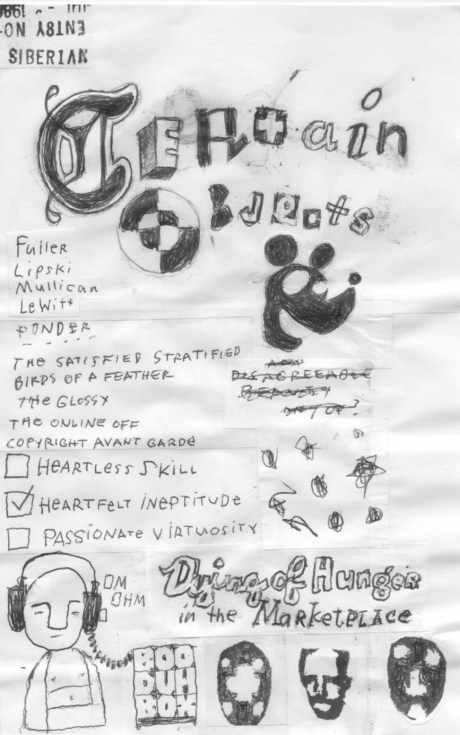 ENTRY NO-
SIBERIAN
CERtain
OBJects
Fuller
Lipski
Mullican
LeWitt
PONDER
THE SATISFIED STRATIFIED
BIRDS OF A FEATHER
THE GLOSSY
THE ONLINE OFF
COPYRIGHT AVANT GARDE
DISAGREEABLE
HEARTLESS SKILL
HEARTFELT INEPTITUDE
PASSIONATE VIRTUOSITY
OM
OHM
Dying of Hunger
in the MARKETPLACE
BOO
DUH
BOX